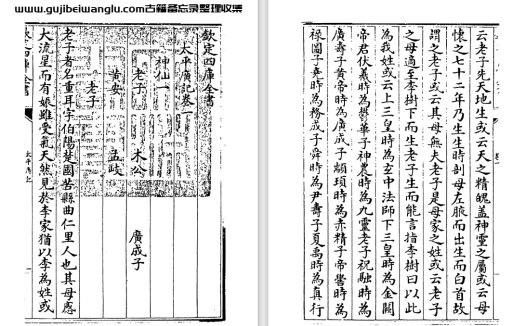 www.gujibeiwanglu.com古籍备忘录整理收集
欽定四庫全書
太平廣記卷一
神仙一
老子 木公 廣成子
黃安 孟岐
老子
老子者名重耳字伯陽楚國苦縣曲仁里人也其母感
大流星而有娠雖受氣天然見於李家猶以李為姓或
太平廣記
云老子先天地生或云天之精魄蓋神靈之屬或云母
懷之七十二年乃生生時剖母左腋而出生而白首故
謂之老子或云其母無夫老子是母家之姓或云老子
之母適至李樹下而生老子生而能言指李樹曰以此
為我姓或云上三皇時為玄中法師下三皇時為金闕
帝君伏羲時為鬱華子神農時為九靈老子祝融時為
廣壽子黃帝時為廣成子顓頊時為赤精子帝嚳時為
祿圖子堯時為務成子舜時為尹壽子夏禹時為真行